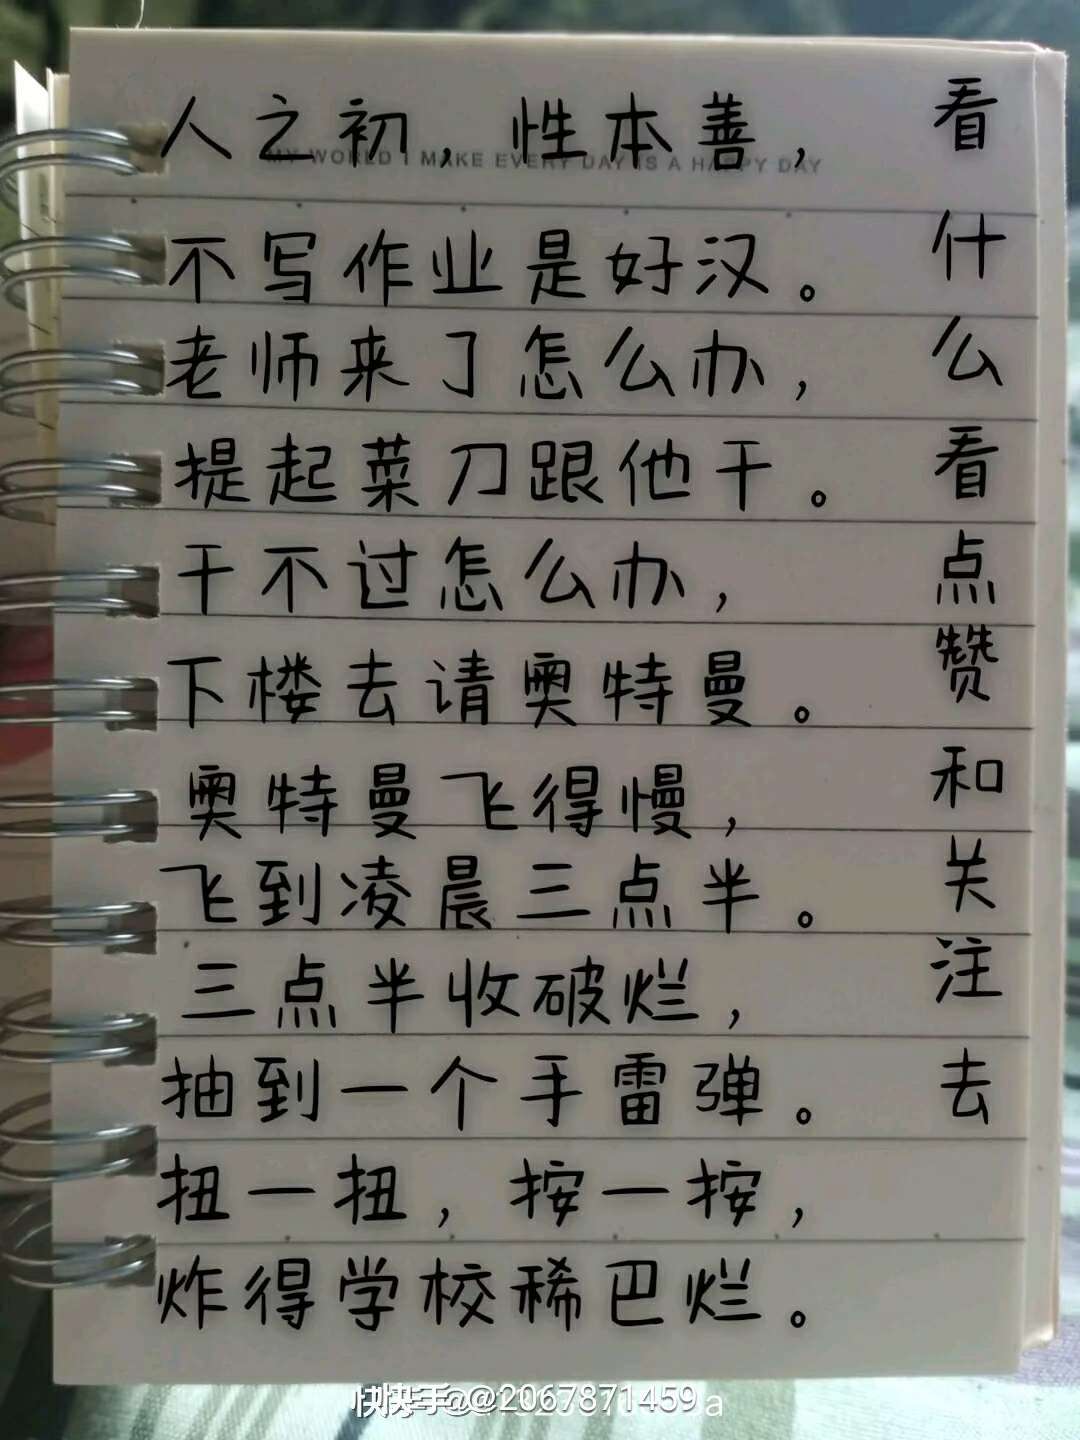 人之初，性本善，
MY WORLD I MAKE EVERY DAY IS A HAPPY DAY
不写作业是好汉。
老师来了怎么办，
提起菜刀跟他干。
干不过怎么办，
下楼去请奥特曼。
奥特曼飞得慢，
飞到凌晨三点半。
三点半收破烂，
抽到一个手雷弹。
扭一扭，按一按，
炸得学校稀巴烂。
看什么看点赞和关注去
快手@2067871459